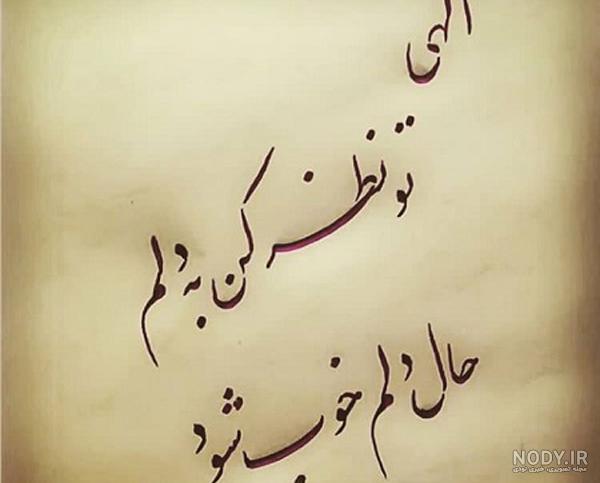 الهی
تو نظر کن به دلم
حال دلم خوب شود
NODY.IR
مجله تصویری، خبری نودی